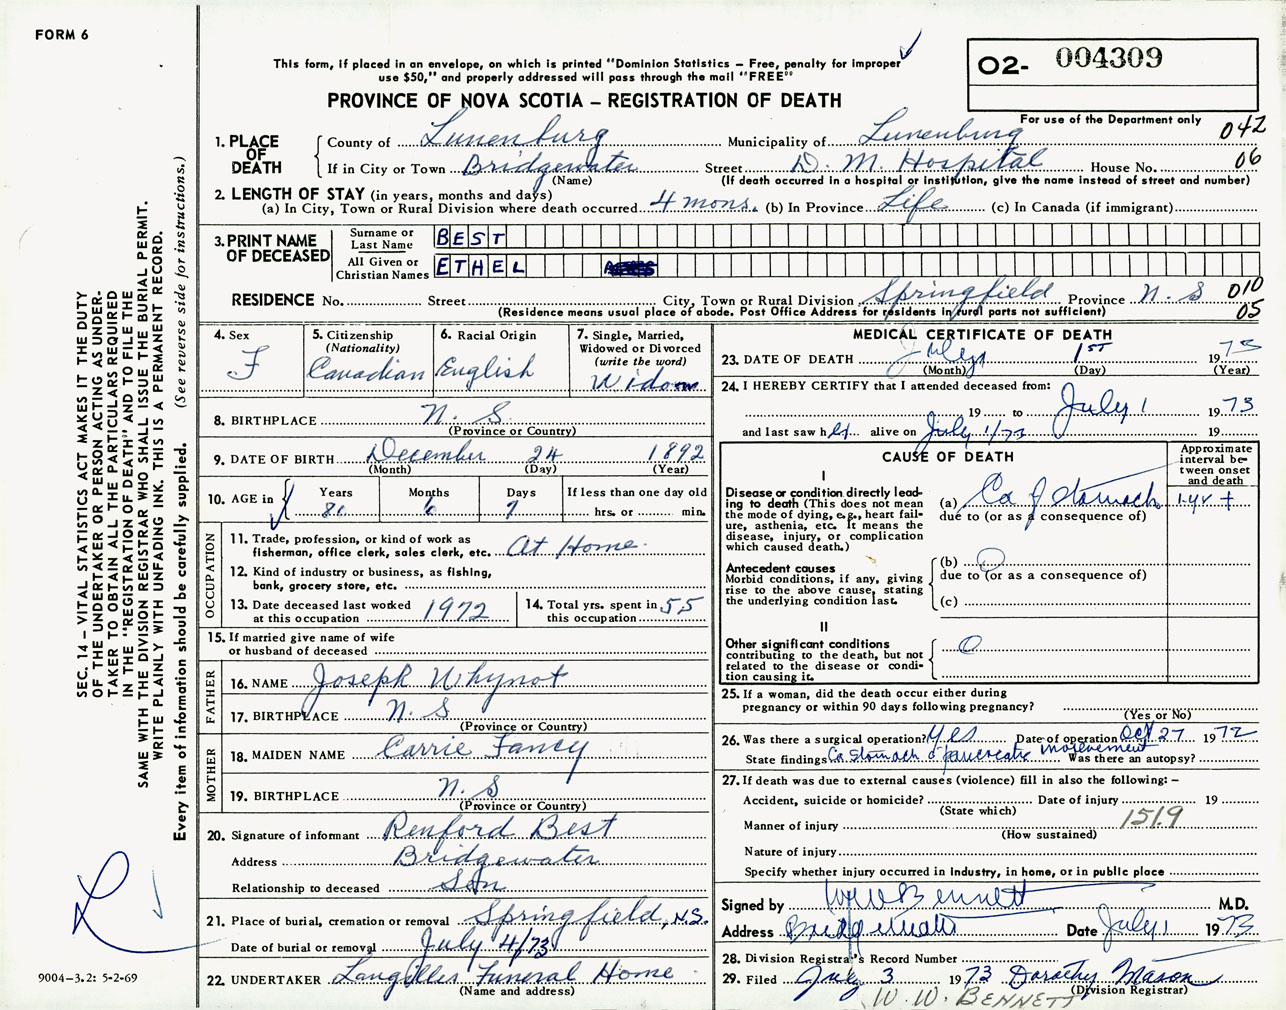 FORM 6
This form, if placed in an envelope, on which is printed "Dominion Statistics – Free, penalty for improper
use $50," and properly addressed will pass through the mail "FREE"
PROVINCE OF NOVA SCOTIA – REGISTRATION OF DEATH
O2- 004309
For use of the Department only
042
06
1. PLACE OF DEATH
County of Lunenburg Municipality of Lunenburg
If in City or Town Bridgewater Street D. M. Hospital House No.
(Name) (If death occurred in a hospital or institution, give the name instead of street and number)
2. LENGTH OF STAY (in years, months and days)
(a) In City, Town or Rural Division where death occurred 4 mons. (b) In Province Life (c) In Canada (if immigrant)
3. PRINT NAME OF DECEASED
Surname or Last Name BEST
All Given or Christian Names ETHEL
RESIDENCE No. Street City, Town or Rural Division Springfield Province N. S 010
(Residence means usual place of abode. Post Office Address for residents in rural parts not sufficient) 05
4. Sex F
5. Citizenship (Nationality) Canadian
6. Racial Origin English
7. Single, Married, Widowed or Divorced (write the word) Widow
8. BIRTHPLACE N. S.
(Province or Country)
9. DATE OF BIRTH December 24 1892
(Month) (Day) (Year)
10. AGE in Years 80 Months 6 Days 7 If less than one day old hrs. or min.
OCCUPATION
11. Trade, profession, or kind of work as
fisherman, office clerk, sales clerk, etc. At Home.
12. Kind of industry or business, as fishing,
bank, grocery store, etc.
13. Date deceased last worked at this occupation 1972
14. Total yrs. spent in this occupation 55
15. If married give name of wife
or husband of deceased
FATHER
16. NAME Joseph Whynot
17. BIRTHPLACE N. S
(Province or Country)
MOTHER
18. MAIDEN NAME Carrie Fancy
19. BIRTHPLACE N. S
(Province or Country)
20. Signature of informant Renford Best
Address Bridgewater
Relationship to deceased Son
21. Place of burial, cremation or removal Springfield, N.S.
Date of burial or removal July 4/73
22. UNDERTAKER Langilles Funeral Home
(Name and address)
MEDICAL CERTIFICATE OF DEATH
23. DATE OF DEATH July 1st 1973
(Month) (Day) (Year)
24. I HEREBY CERTIFY that I attended deceased from:
19 to July 1 1973
and last saw her alive on July 1/73 19
CAUSE OF DEATH
Approximate interval between onset and death
I
Disease or condition directly leading to death (This does not mean the mode of dying, e.g., heart failure, asthenia, etc. It means the disease, injury, or complication which caused death.)
(a) Ca of stomach 1 yr +
due to (or as a consequence of)
Antecedent causes
Morbid conditions, if any, giving rise to the above cause, stating the underlying condition last.
(b) O
due to (or as a consequence of)
(c)
II
Other significant conditions
contributing to the death, but not related to the disease or condition causing it.
O
25. If a woman, did the death occur either during
pregnancy or within 90 days following pregnancy?
(Yes or No)
26. Was there a surgical operation? Yes Date of operation Oct 27 1972
State findings Ca stomach & pancreatic involvement Was there an autopsy?
27. If death was due to external causes (violence) fill in also the following: –
Accident, suicide or homicide? Date of injury 19
(State which)
Manner of injury 1519
(How sustained)
Nature of injury
Specify whether injury occurred in Industry, in home, or in public place
Signed by W W Bennett M.D.
Address Bridgewater Date July 1 1973
28. Division Registrar's Record Number
29. Filed July 3 1973 Dorothy Mason
(Division Registrar)
W. W. BENNETT
SEC. 14 – VITAL STATISTICS ACT MAKES IT THE DUTY
OF THE UNDERTAKER OR PERSON ACTING AS UNDER-
TAKER TO OBTAIN ALL THE PARTICULARS REQUIRED
IN THE "REGISTRATION OF DEATH" AND TO FILE THE
SAME WITH THE DIVISION REGISTRAR WHO SHALL ISSUE THE BURIAL PERMIT.
WRITE PLAINLY WITH UNFADING INK. THIS IS A PERMANENT RECORD.
Every item of information should be carefully supplied. (See reverse side for instructions.)
9004–3.2: 5-2-69